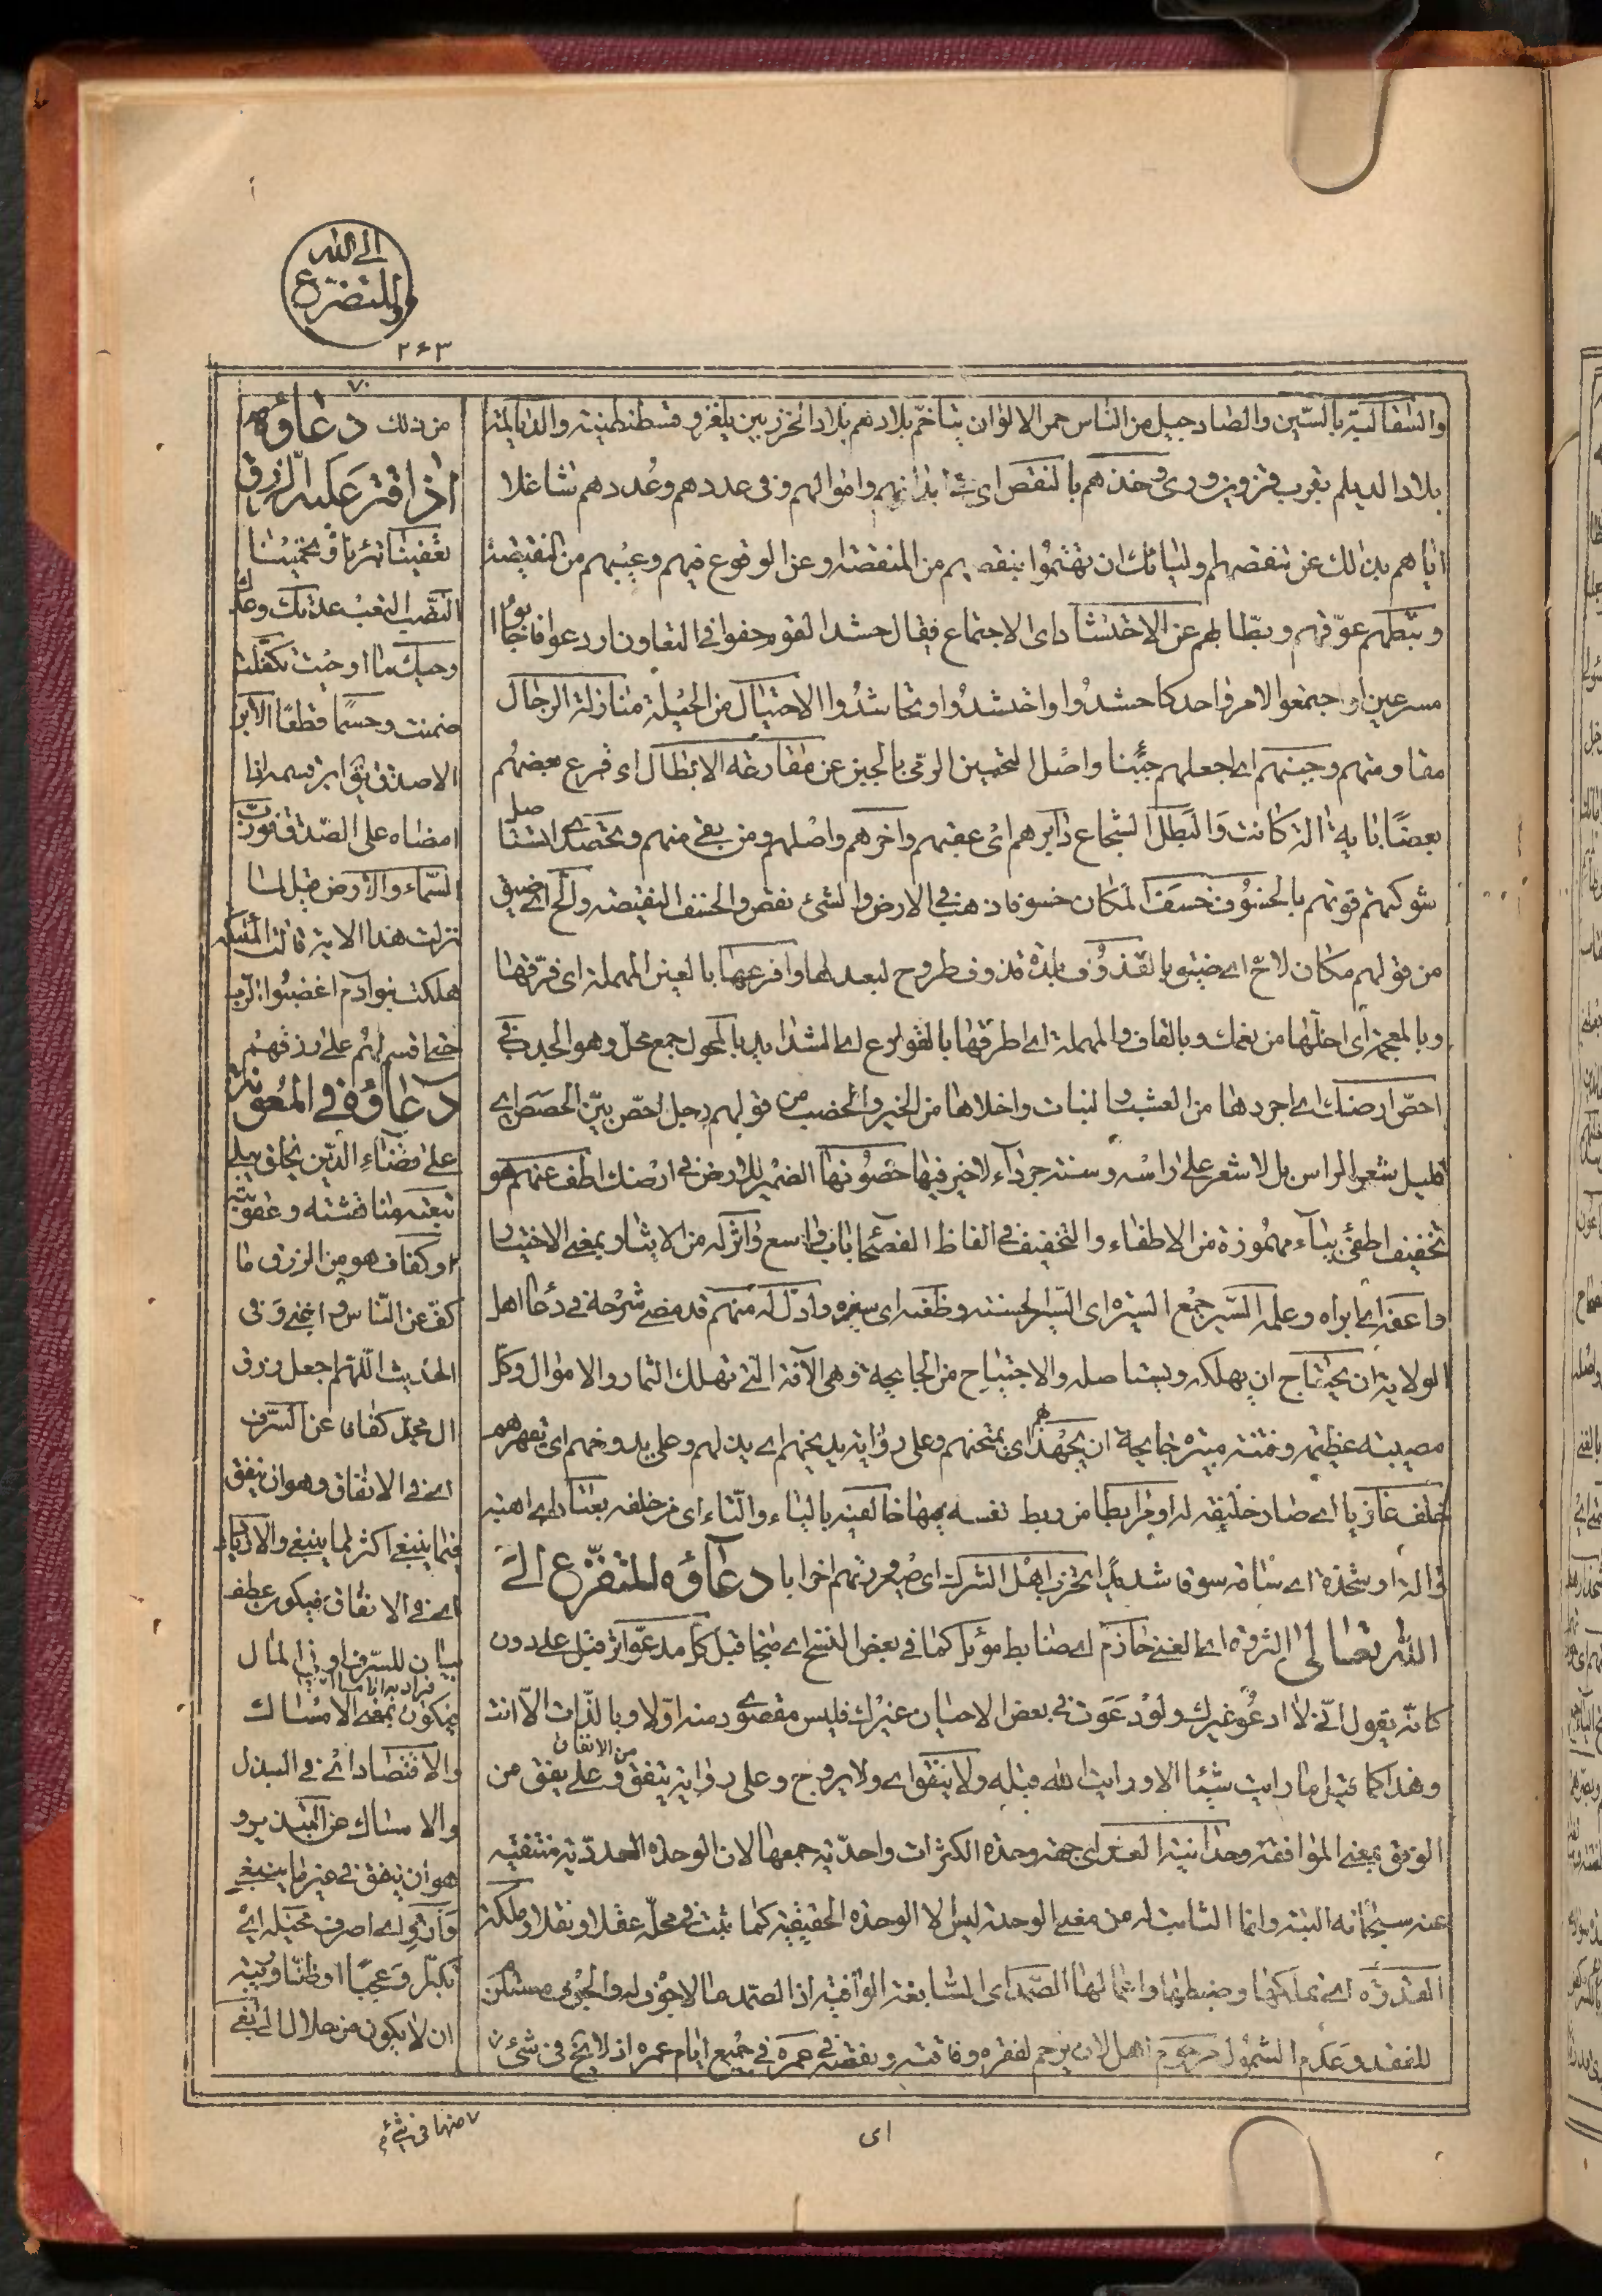 الی الله
وللتضرع
۲۶۳
والسقالبة بالسّین والصاد جیل من الناس حمر الالوان یتاخم بلادهم بلاد الخزر بین بلغر و قسطنطنیة والدیالمة
بلاد الدیلم بقرب قزوین وری وخذهم بالنقص ای فی ابدانهم واموالهم وفی عددهم وعُددهم شاغلا
ایاهم بذلك عن تنقصهم ولیاتك ان تهتموا بنقصهم من المنقصة وعن الوقوع فیهم وعیبهم من النقیصة
وثبّطهم عوّقهم وبطّا بهم عن الاحتشاد ای الاجتماع فیقال حشد القوم حفوا فی التعاون او دعوا فاجابوا
مسرعین او اجتمعوا لامر واحد كاحشدوا واحتشدوا وتحاشدُوا الاحتیال من الحیلة منازلة الرجال
مقاومتهم وجبنهم ای اجعلهم جبُنا واصل التجبین الرمی بالجبن عن مقارعة الابطال ای قرع بعضهم
بعضًا بایة الة كانت والبطل الشجاع دابرهم ای عقبهم واخرهم واصلهم ومن بقی منهم وتحصد استیصال
شوكتهم قوتهم بالخسُوف خسَف المكان خسوفا ذهب فی الارض والشئ نقص والخسف النقیصة والح ای ضیق
من قولهم مكان لاحّ ای ضیق بالقذوُف بلدة قذوف طروح لبعدها وافرعها بالعین المهملة ای فرّقها
وبالمعجمة ای اخلّها من نعمك وبالقاف والمهملة ای اطرقها بالقوارع ای الشداید بالمحول جمع محل وهو الجدب فی
احصّ ارضك ای اجردها من العشب والنبات واخلاها من الخیر والخصب من قولهم رجل احصّ بیّن الحصَص ای
قلیل شعر الراس بل لا شعر علی راسه وسنة جرداء لا خیر فیها حصُونها الضمیر للارض فی ارضك اطف عنهم هو
تخفیف اطفئ بیاء مهموزة من الاطفاء والتخفیف فی الفاظ الفصحا باب واسع واثر له من الایثار بمعنی الاختیار
واعفه ای ابراه وعلمه السیر جمع السیرة ای السیر الحسنة وظفه ای سفره وادل له منهم قد مضی شرحه فی دعا اهل
الولایة ان یجتاح ان یهلكه ویستاصله والاجتیاح من الجایحة وهی الآفة التی تهلك الثمار والاموال وكلّ
مصیبة عظیمة وفتنة مبیرة جایحة ان یجهدهم ای یمتحنهم وعلی روایة یدیخهم ای یذلهم وعلی یدوخهم ای یقهرهم
خلف غازیا ای صار خلیفة له او مرابطا من ربط نفسه بمهما خالفیه بالیاء والتاء ای من خلفه بعتاد ای اهبة
والة او شحذه ای ساقه سوقا شدیدا تحزب اهل الشرك ای صیرورتهم احزابا دعاؤه للتفرّع الی
الله تعالی الثروة ای الغنی حازم ای ضابط مؤید كما فی بعض النسخ ای منجا قبل كل مدعو اثر قبل علی دون
كانّه یقول انّی لا ادعُو غیرك ولو دعَوت فی بعض الاحیان غیرك فلیس مقصودی منه اوّلا وبالذّات الّا انت
وهذا كما قیل ما رایت شیئا الا ورایت الله قبله ولا یتفق ای ولا یروج وعلی روایة ینفق من الانفاق وعلی یفق من
الوفق بمعنی الموافقة وحدانیة العدد ای جهة وحدة الكثرات واحدیّة جمعها لان الوحدة العددیّة منتفیة
عنه سبحانه البتة وانما الثابت له من معنی الوحدة لیس الا الوحدة الحقیقیة كما ثبت فی محلّه عقلا ونقلا وملكة
القدرة ای تملكها وضبطها واعمالها الصّمد ای المشابعة الواقیة اذ الصّمد ما لا جوف له والجوف مستلزم
للفقد وعدم الشمول مرحوم اهل لان یرحم لفقره وفاقته وبفقره فی عمره فی جمیع ایام عمره اذ لا یخ فی شئ
من ذلك دعاؤه
اذا قتر علیه الرّزق
النصب التعب عدتك وعدك
وحیك ما اوحیت تكفلت
ضمنت وحسمًا قطعًا الابر
الاصدق یق ابر قسمه اذا
امضاه علی الصّدق فورب
السّماء والارض قیل لما
نزلت هذا الایة قالت الملئكة
هلكت بنو آدم اغضبُوا الرّب
حتی اقسم لهم علی ارزاقهم
دعاؤه فی المعونة
علی قضاء الدّین
او كفاف هو من الرزق ما
كفّ عن النّاس واغنی وفی
الحدیث اللّهم اجعل رزق
ال محمّد كفافا عن السّرف
ای فی الانفاق وهو ان ینفق
فیما ینبغی اكثر مما ینبغی والازدیاد
ای فی الانفاق فیكون عطف
بیان للسّرف او فی المال
فیكون بمعنی الامساك
والاقتصاد ای فی البذل
والامساك عن التبذیر و
هو ان ینفق فی غیر ما ینبغی
وازو ای اصرف مخیلة ای
تكبّرا وعجبًا او ظنّا وریبة
ان لا یكون من حلال
ای